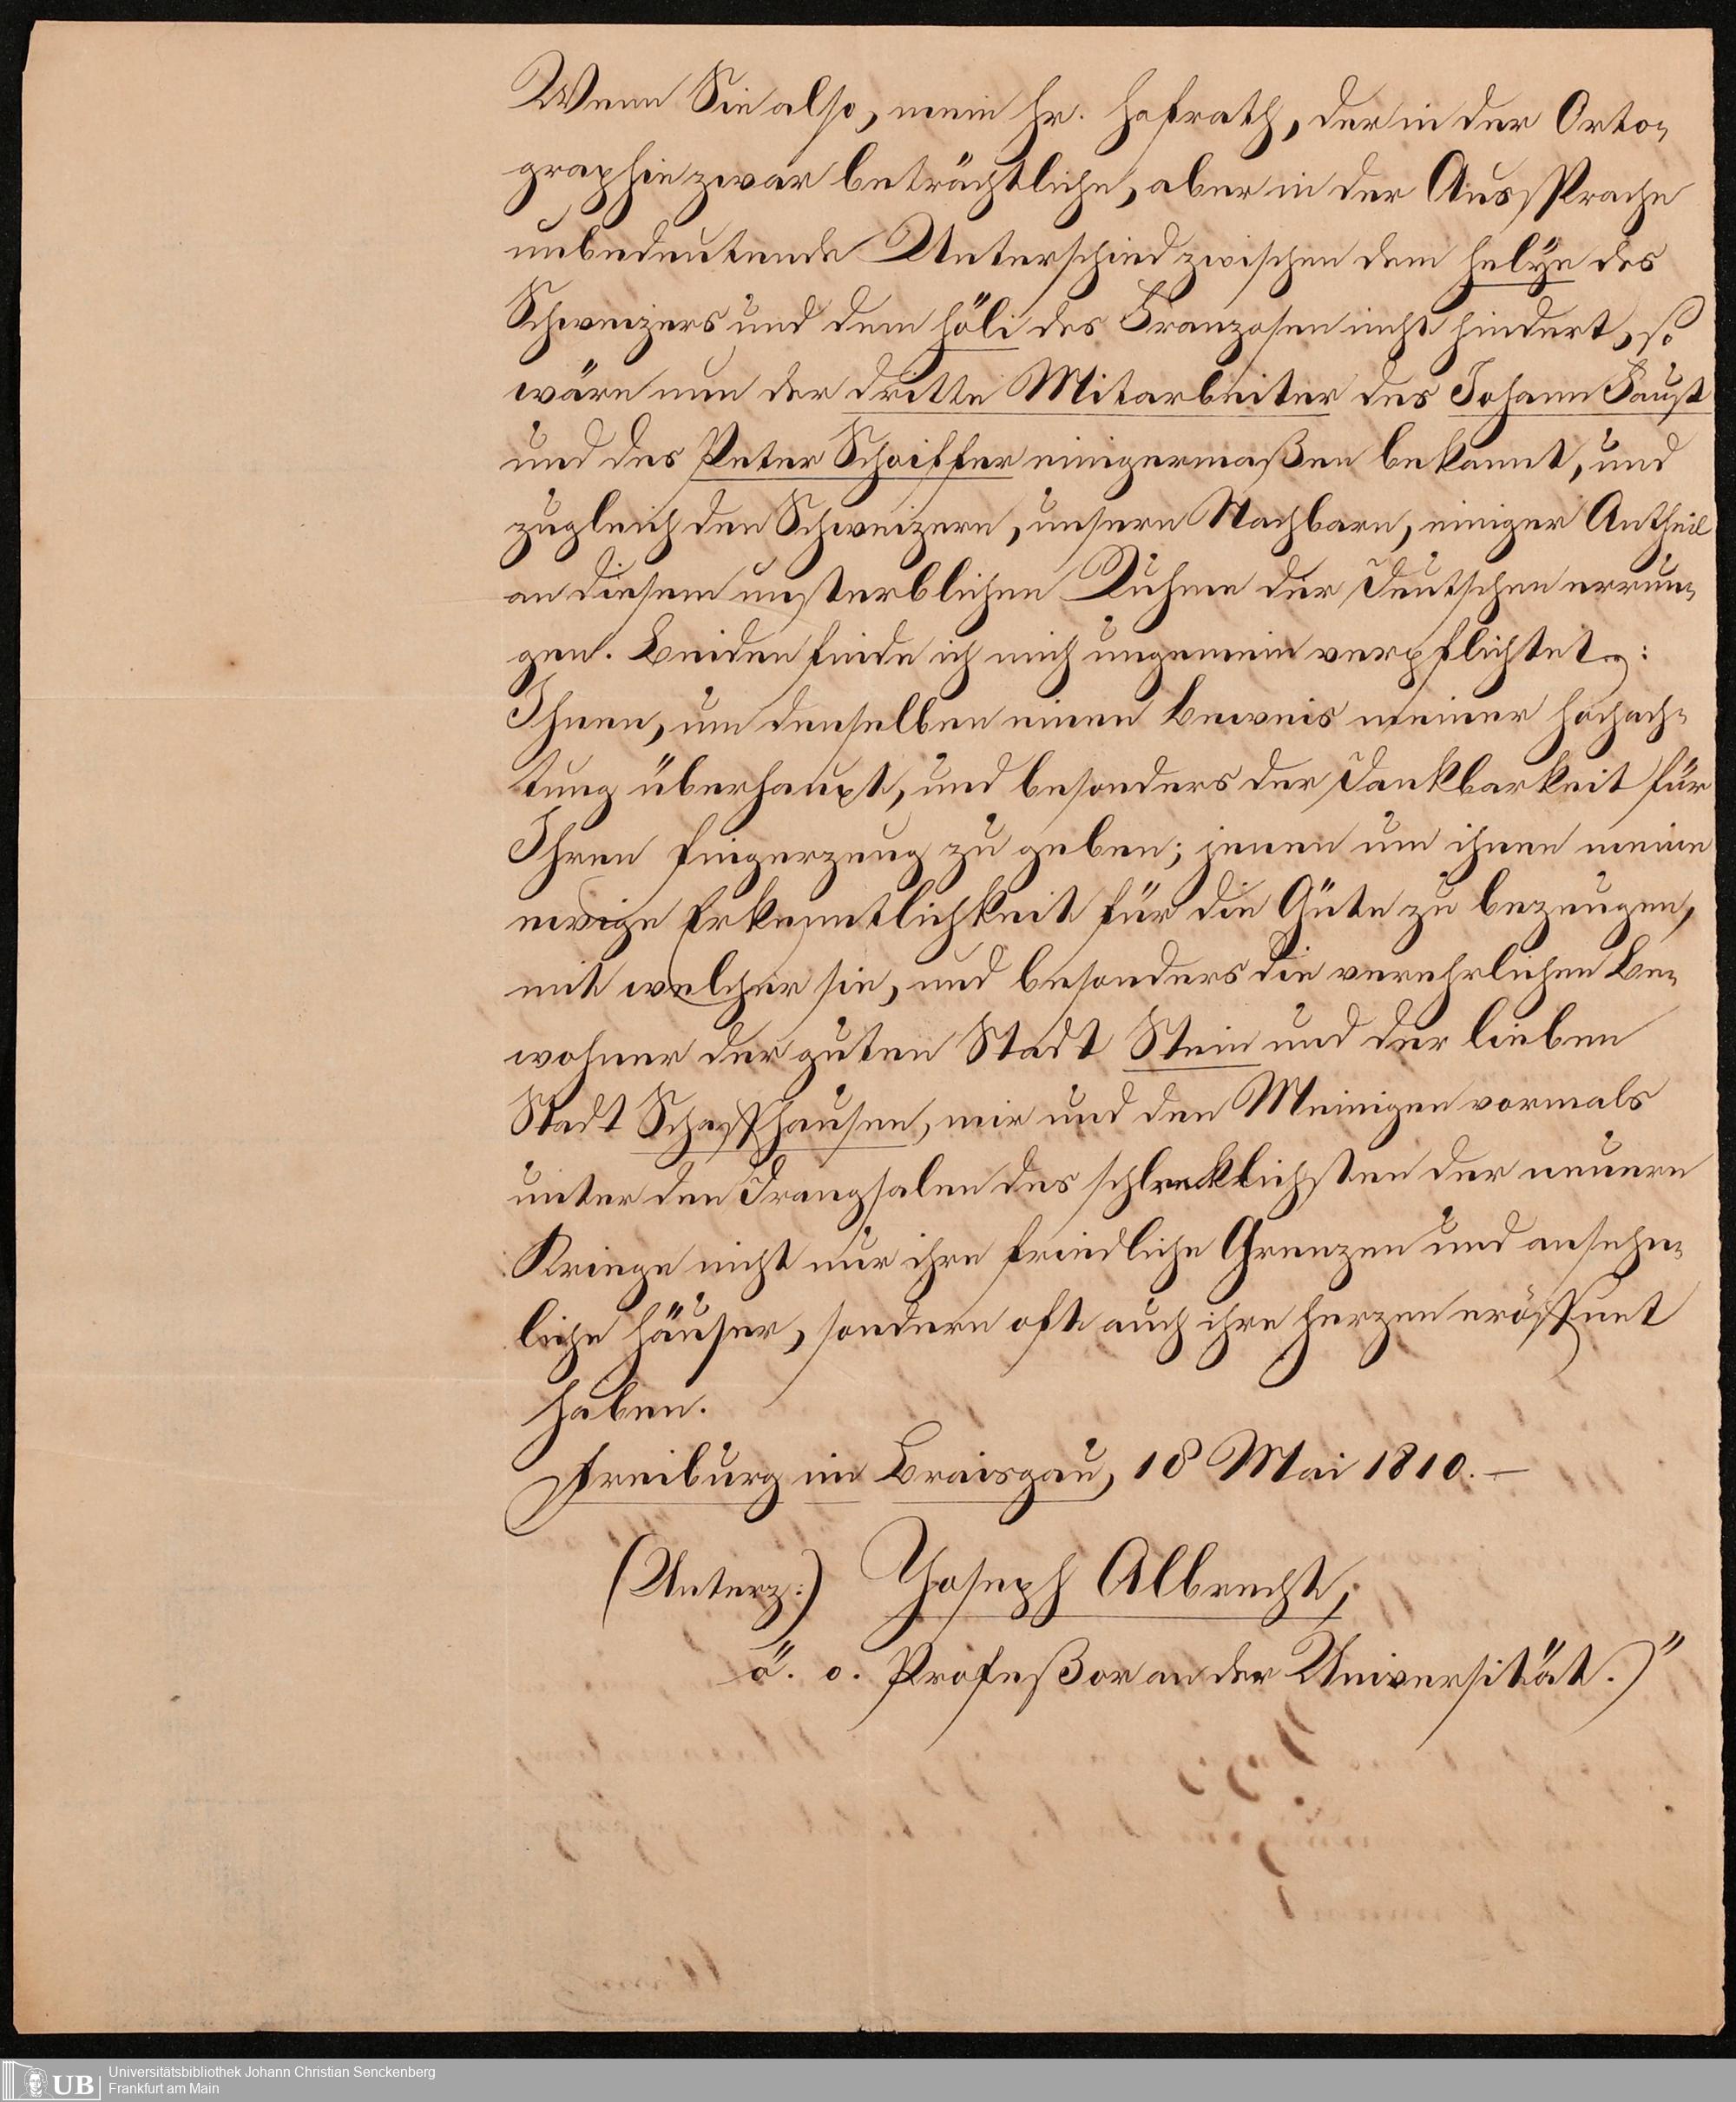 Wenn Sie also, mein Hr. Hofrath, der in der Orto-
graphie zwar beträchtliche, aber in der Aussprache
unbedeutende Unterschied zwischen dem Helÿe des
Schweizers und dem Höli des Franzosen nicht hindert, so
wäre nun der dritte Mitarbeiter des Johann Faust
und des Peter Schoiffer einigermaßen bekannt, und
zugleich den Schweizern, unsern Nachbarn, einiger Antheil
an diesem unsterblichen Ruhme der Deutschen errun-
gen. Beiden finde ich mich ungemein verpflichtet:
Ihnen, um denselben einen Beweis meiner Hochach-
tung überhaupt, und besonders der Dankbarkeit für
Ihren Fingerzeug zu geben; jenen um ihnen meine
ewige Erkenntlichkeit für die Güte zu bezeugen,
mit welcher sie, und besonders die verehrlichen Be-
wohner der guten Stadt Stein und der lieben
Stadt Schaffhausen, mir und den Meinigen vormals
unter den Drangsalen des schrecklichsten der neuern
Kriege nicht nur ihre friedliche Grenzen und ansehn-
liche Häuser, sondern oft auch ihre Herzen eröffnet
haben.
Freiburg im Braisgau, 18 Mai 1810. —
(Unterz:) Joseph Albrecht,
ö. o. Profeßor an der Universität.)"
UB Universitätsbibliothek Johann Christian Senckenberg
Frankfurt am Main